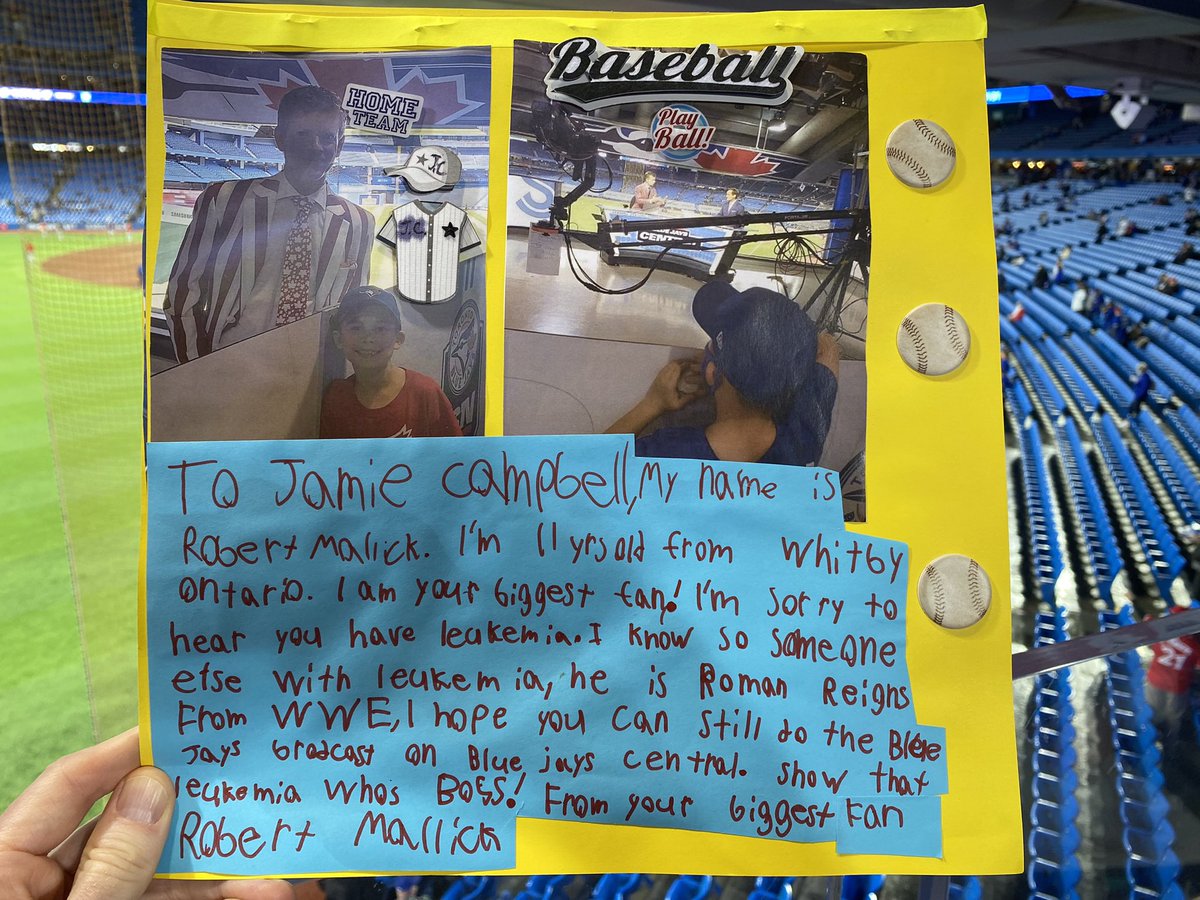 Baseball
HOME
TEAM
Play
Ball!
J.C.
J.C.
To Jamie Campbell, My name is
Robert Mallick. I'm 11 yrs old from Whitby
Ontario. I am your biggest fan! I'm sorry to
hear you have leukemia. I know so someone
else with leukemia, he is Roman Reigns
From WWE, I hope you can still do the Blue
Jays brodcast on Blue jays central. show that
leukemia whos BOSS! From your biggest Fan
Robert Mallick